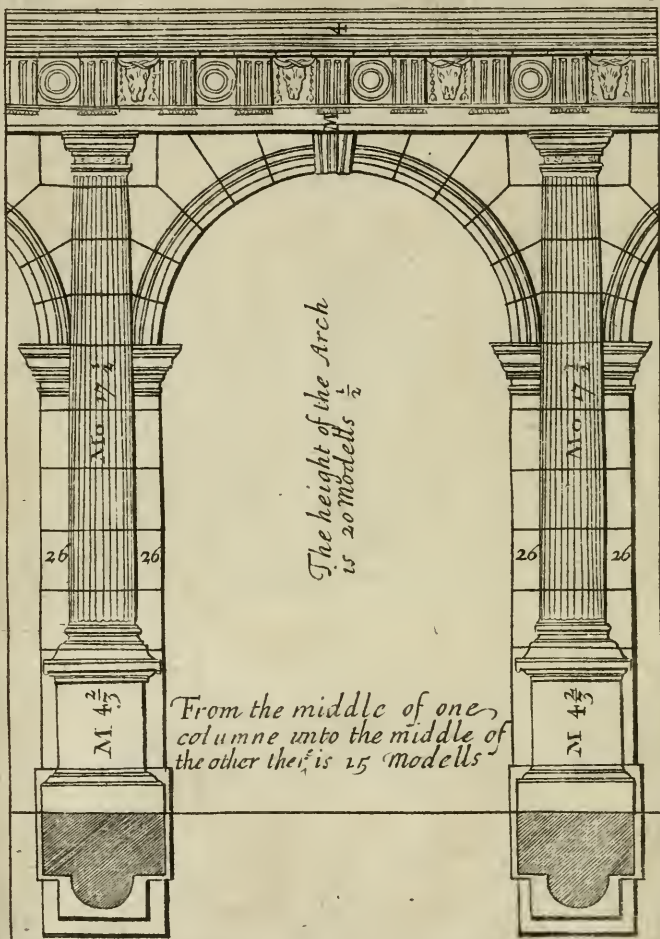 4
M
Mo 17 1/2
Mo 17 1/2
The height of the Arch
is 20 Modells 1/2
26
26
26
26
M 4 2/3
M 4 2/3
From the middle of one
columne unto the middle of
the other ther is 15 modells